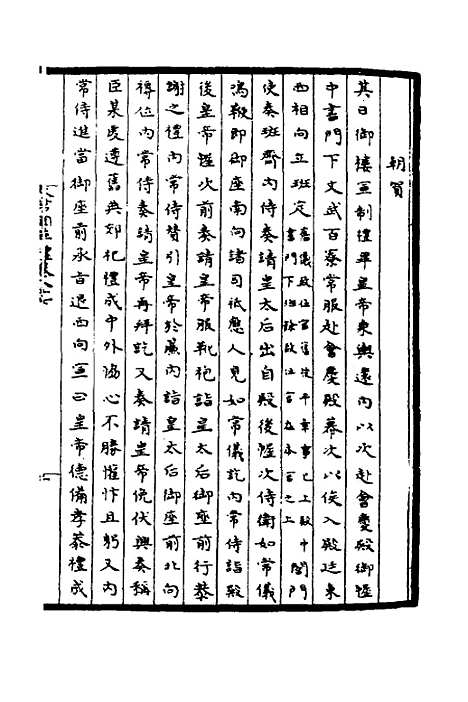 朝賀
其日御樓宣制禮畢皇帝乘輿還內以次赴會慶殿御幄
中書門下文武百寮常服赴會慶殿幕次以俟入殿廷東
西相向立班定
使奏班齊內侍奏請皇太后出自殿後幄次侍衛如常儀
鳴鞭即御座南向諸司祗應人見如常儀訖內常侍詣殿
後皇帝幄次前奏請皇帝服靴袍詣皇太后御座前行恭
謝之禮內常侍贊引皇帝於簾內詣皇太后御座前北向
褥位內常侍奏請皇帝再拜訖又奏請皇帝俛伏興奏稱
臣某虔遵舊典郊祀禮成中外協心不勝懽忭且躬又內
常侍進當御座前承旨退西向宣曰皇帝德備孝恭禮成